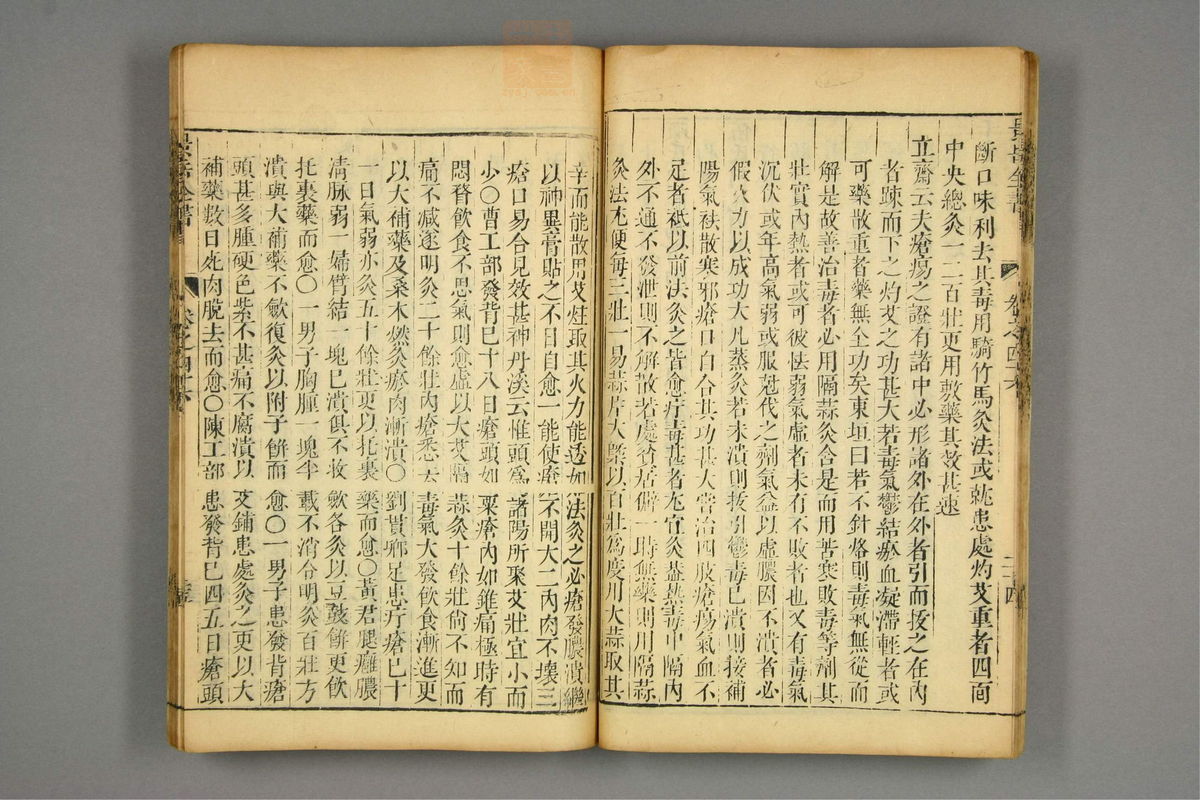 景岳全書
卷之四十六
二十四
斷口味利去其毒用騎竹馬灸法或就患處灼艾重者四面
中央總灸一二百壯更用敷藥其效甚速
立齋云夫瘡瘍之證有諸中必形諸外在外者引而拔之在內
者疎而下之灼艾之功甚大若毒氣鬱結瘀血凝滯輕者或
可藥散重者藥無全功矣東垣曰若不針烙則毒氣無從而
解是故善治毒者必用隔蒜灸舍是而用苦寒敗毒等劑其
壯實內熱者或可彼怯弱氣虛者未有不敗者也又有毒氣
沉伏或年高氣弱或服尅伐之劑氣益以虛膿因不潰者必
假火力以成功大凡蒸灸若未潰則拔引鬱毒已潰則接補
陽氣袪散寒邪瘡口自合其功甚大嘗治四肢瘡瘍氣血不
足者袛以前法灸之皆愈疔毒甚者尢宜灸蓋熱毒中隔內
外不通不發泄則不解散若處貧居僻一時無藥則用隔蒜
灸法尢便每三壯一易蒜片大槩以百壯爲度用大蒜取其
辛而能散用艾炷取其火力能透如法灸之必瘡發膿潰繼
以神異膏貼之不日自愈一能使瘡不開大二內肉不壞三
瘡口易合見效甚神丹溪云惟頭爲諸陽所聚艾壯宜小而
少〇曹工部發背已十八日瘡頭如粟瘡內如錐痛極時有
悶瞀飲食不思氣則愈虛以大艾隔蒜灸十餘壯尚不知而
痛不減遂明灸二十餘壯內瘡悉去毒氣大發飲食漸進更
以大補藥及桑木燃灸瘀肉漸潰〇劉貫卿足患疔瘡已十
一日氣弱亦灸五十餘壯更以托裏藥而愈〇黃君腿癰膿
淸脉弱一婦臂結一塊已潰俱不收歛各灸以豆豉餅更飲
托裏藥而愈〇一男子胸腫一塊半載不消令明灸百壯方
潰與大補藥不歛復灸以附子餅而愈〇一男子患發背瘡
頭甚多腫硬色紫不甚痛不腐潰以艾鋪患處灸之更以大
補藥數日死肉脫去而愈〇陳工部患發背已四五日瘡頭
景岳全書
卷之四十六